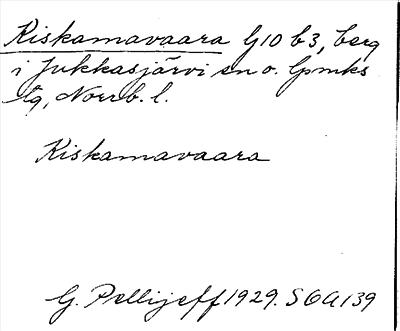 Kiskamavaara G10 b3, berg
i Jukkasjärvi sn o. lpmks
tg, Norrb. l.
Kiskamavaara
G. Pellijeff 1929. SOA 139